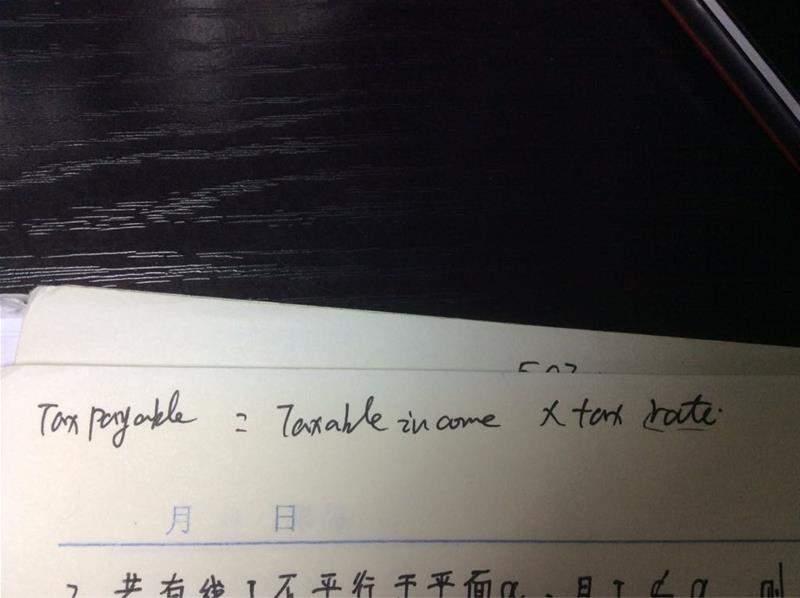 Tax payable = Taxable income x tax rate.
月 日
2. 若直线 I 不平行于平面α, 且 I ⊄ α 则